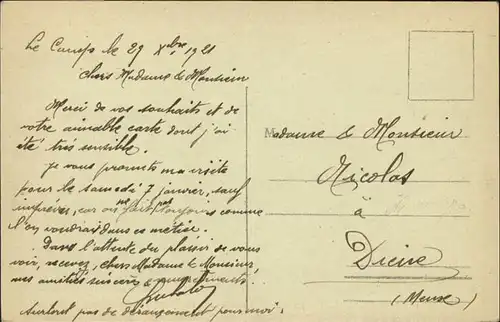 Le Camp le 29 Xbre 1921
Chers Madame & Monsieur
Merci de vos souhaits et de
votre aimable carte dont j'ai
été très sensible.
Je vous promets ma visite
pour le samedi 7 janvier, sauf
imprévu, car on ne fait pas toujours comme
l'on voudrait dans ce métier.
Dans l'attente du plaisir de vous
voir, recevez, chers Madame & Monsieur,
mes amitiés sincères &
Surtout pas de dérangement pour moi.
Madame & Monsieur
Nicolas
à
Dieue
(Meuse)